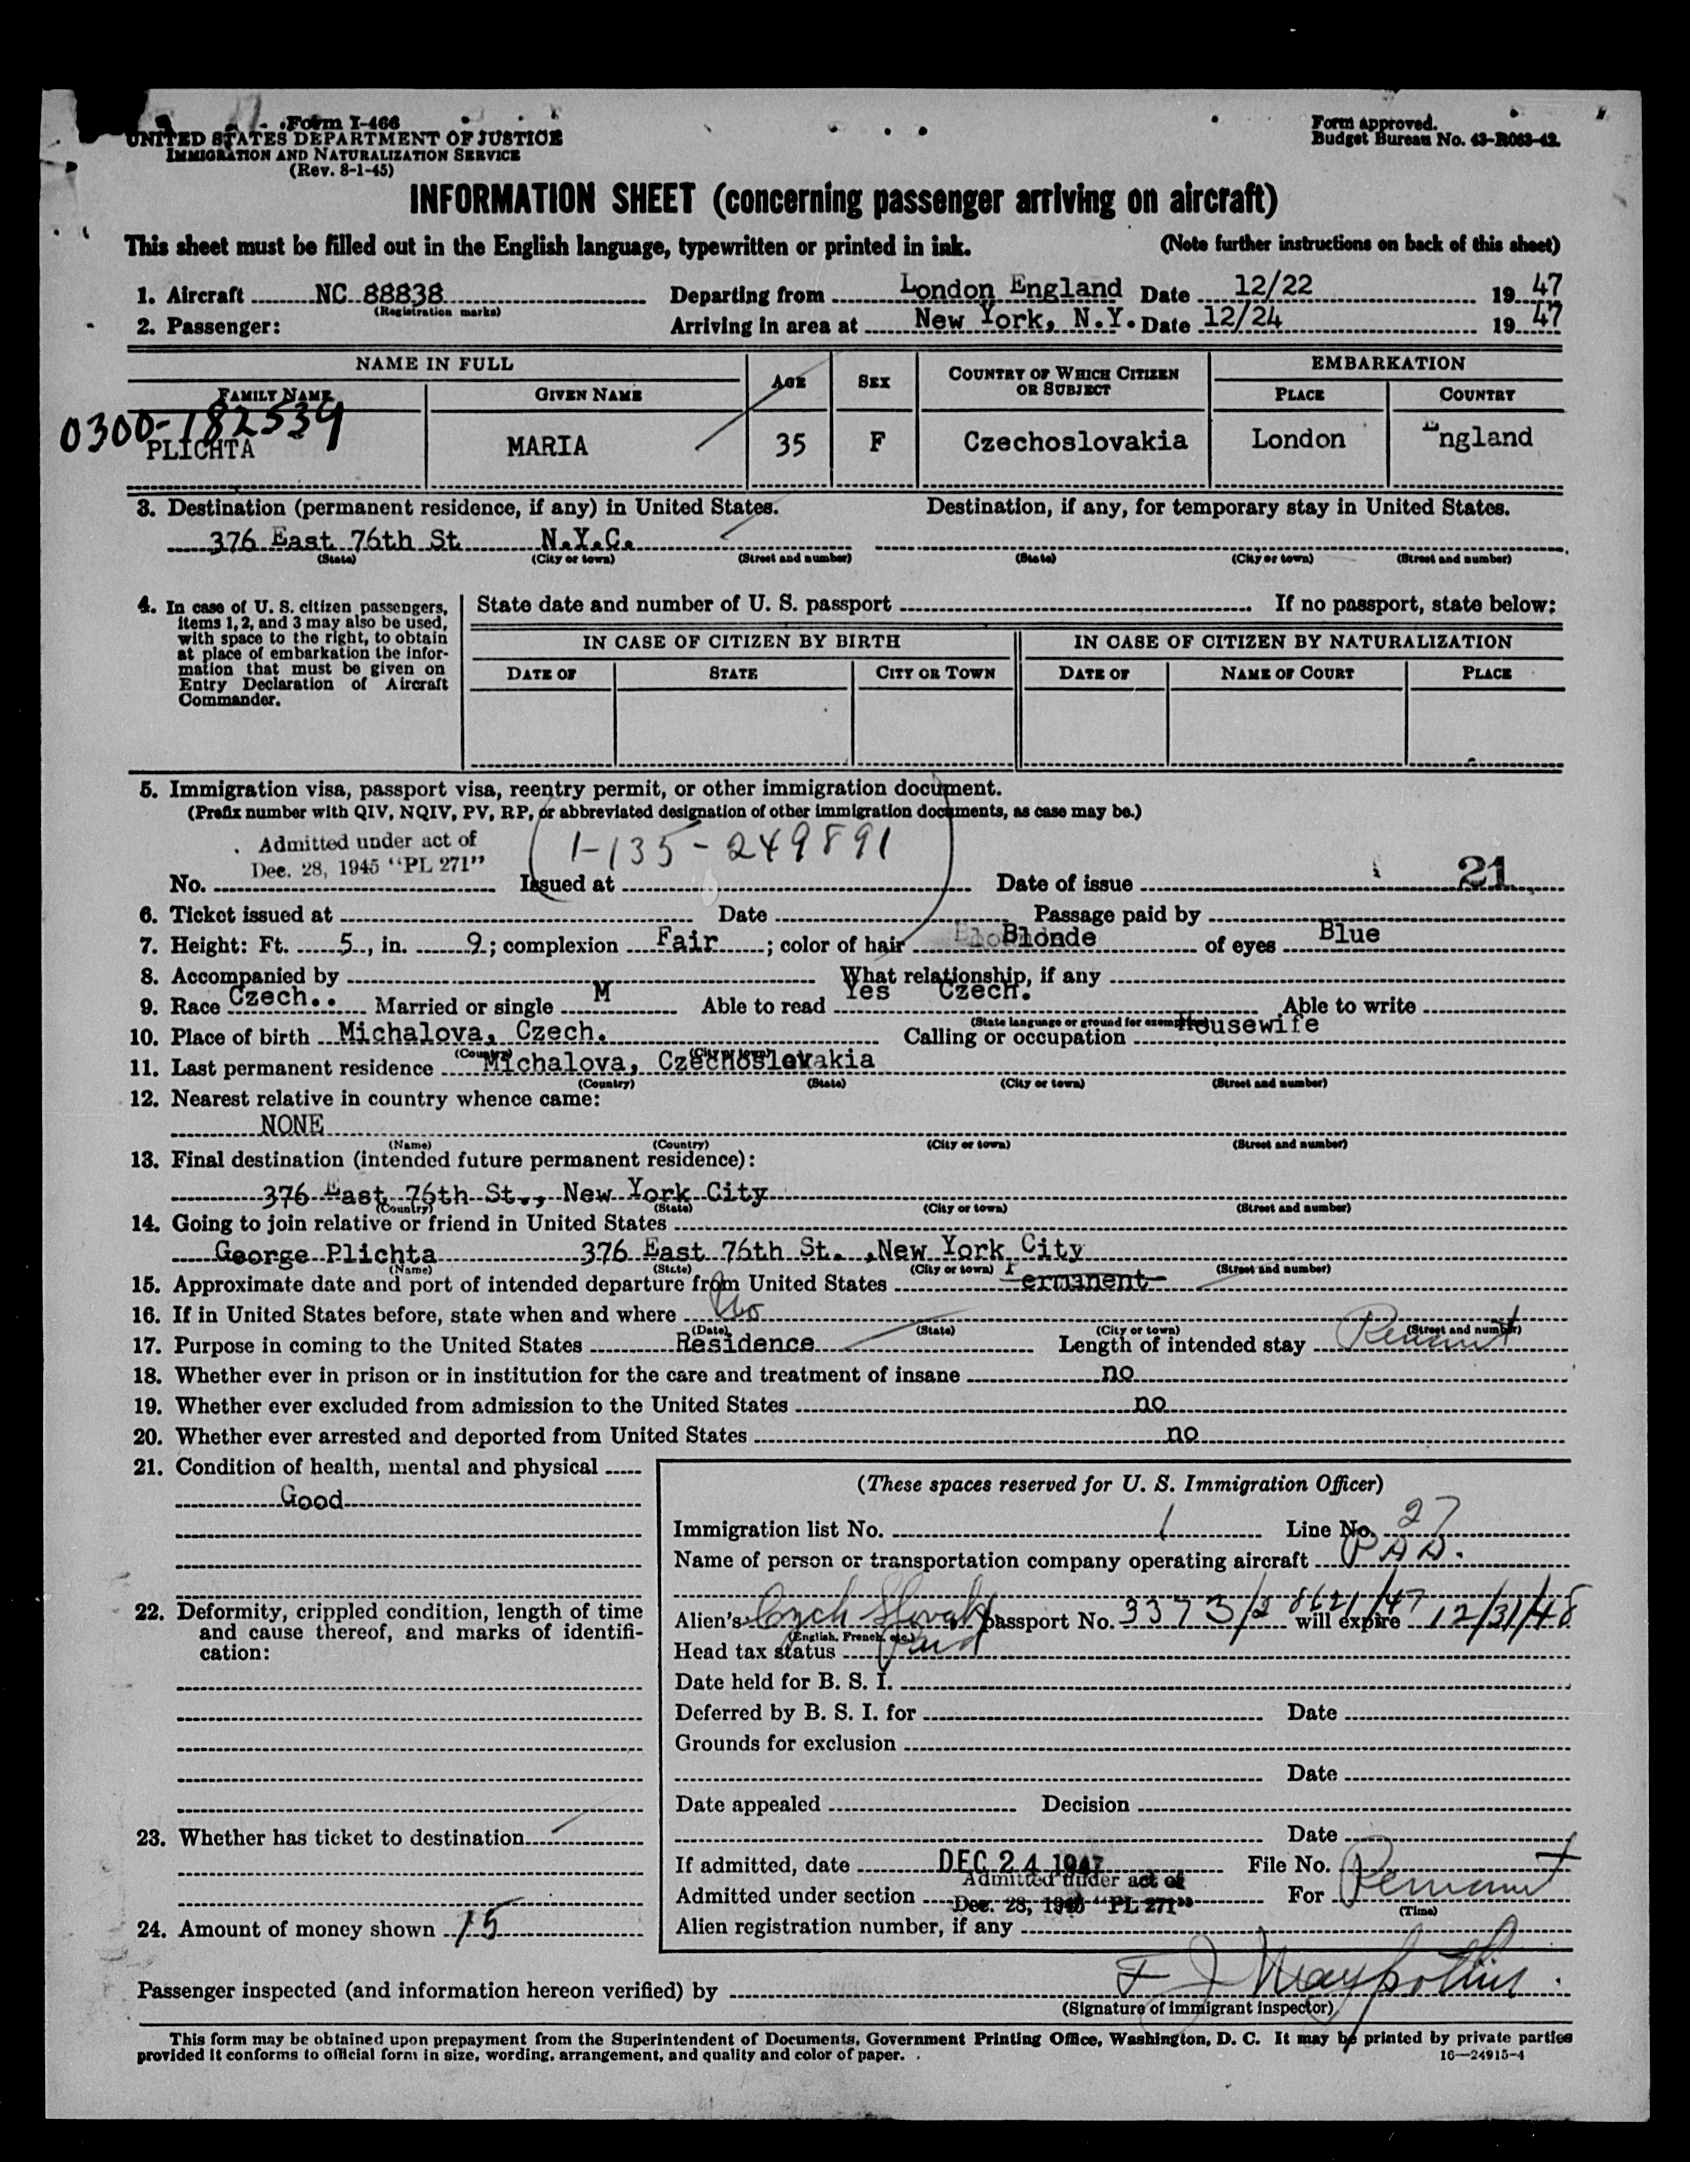 Form I-466
UNITED STATES DEPARTMENT OF JUSTICE
IMMIGRATION AND NATURALIZATION SERVICE
(Rev. 8-1-45)
Form approved.
Budget Bureau No. 43-R063-42.
INFORMATION SHEET (concerning passenger arriving on aircraft)
This sheet must be filled out in the English language, typewritten or printed in ink. (Note further instructions on back of this sheet)
1. Aircraft NC 88838 Departing from London England Date 12/22 1947
(Registration marks)
2. Passenger: Arriving in area at New York, N.Y. Date 12/24 1947
NAME IN FULL AGE SEX COUNTRY OF WHICH CITIZEN OR SUBJECT EMBARKATION
FAMILY NAME GIVEN NAME PLACE COUNTRY
0300-182539
PLICHTA MARIA 35 F Czechoslovakia London England
3. Destination (permanent residence, if any) in United States. Destination, if any, for temporary stay in United States.
376 East 76th St N.Y.C.
(State) (City or town) (Street and number) (State) (City or town) (Street and number)
4. In case of U. S. citizen passengers, items 1, 2, and 3 may also be used, with space to the right, to obtain at place of embarkation the information that must be given on Entry Declaration of Aircraft Commander.
State date and number of U. S. passport If no passport, state below:
IN CASE OF CITIZEN BY BIRTH IN CASE OF CITIZEN BY NATURALIZATION
DATE OF STATE CITY OR TOWN DATE OF NAME OF COURT PLACE
5. Immigration visa, passport visa, reentry permit, or other immigration document.
(Prefix number with QIV, NQIV, PV, RP, or abbreviated designation of other immigration documents, as case may be.)
Admitted under act of
Dec. 28, 1945 "PL 271"
1-135-249891
No. Issued at Date of issue 21
6. Ticket issued at Date Passage paid by
7. Height: Ft. 5, in. 9; complexion Fair; color of hair Blonde of eyes Blue
8. Accompanied by What relationship, if any
9. Race Czech.. Married or single M Able to read Yes Czech. Able to write
(State language or ground for exemption)
10. Place of birth Michalova, Czech. Calling or occupation Housewife
(Country) (City or town)
11. Last permanent residence Michalova, Czechoslovakia
(Country) (State) (City or town) (Street and number)
12. Nearest relative in country whence came:
NONE
(Name) (Country) (City or town) (Street and number)
13. Final destination (intended future permanent residence):
376 East 76th St., New York City
(Country) (State) (City or town) (Street and number)
14. Going to join relative or friend in United States
George Plichta 376 East 76th St. ,New York City
(Name) (State) (City or town) (Street and number)
15. Approximate date and port of intended departure from United States Permanent
16. If in United States before, state when and where No
(Date) (State) (City or town) (Street and number)
17. Purpose in coming to the United States Residence Length of intended stay
18. Whether ever in prison or in institution for the care and treatment of insane no
19. Whether ever excluded from admission to the United States no
20. Whether ever arrested and deported from United States no
21. Condition of health, mental and physical
Good
22. Deformity, crippled condition, length of time and cause thereof, and marks of identification:
23. Whether has ticket to destination
24. Amount of money shown 15
(These spaces reserved for U. S. Immigration Officer)
Immigration list No. 1 Line No. 27
Name of person or transportation company operating aircraft P A A.
Alien's Czech Slovak passport No. 3373/2 8621/47 will expire 12/31/48
(English, French, etc.)
Head tax status Paid
Date held for B. S. I.
Deferred by B. S. I. for Date
Grounds for exclusion
Date
Date appealed Decision
Date
If admitted, date DEC 24 1947 File No.
Admitted under act of
Admitted under section Dec. 28, 1945 "PL 271" For
(Time)
Alien registration number, if any
Passenger inspected (and information hereon verified) by
(Signature of immigrant inspector)
This form may be obtained upon prepayment from the Superintendent of Documents, Government Printing Office, Washington, D. C. It may be printed by private parties
provided it conforms to official form in size, wording, arrangement, and quality and color of paper.
16—24915-4